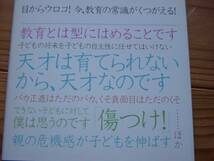 目からウロコ！今、教育の常識がくつがえる！
教育とは型にはめることです
子どもの将来を子どもの自主性に任せてはいけない
天才は育てられない
から、天才なのです
バカ正直はただのバカ、くそ真面目はただのくそ
子どもに対して
僕は思うのです
「傷つけ！」
親の危機感が子どもを伸ばす
……ほか